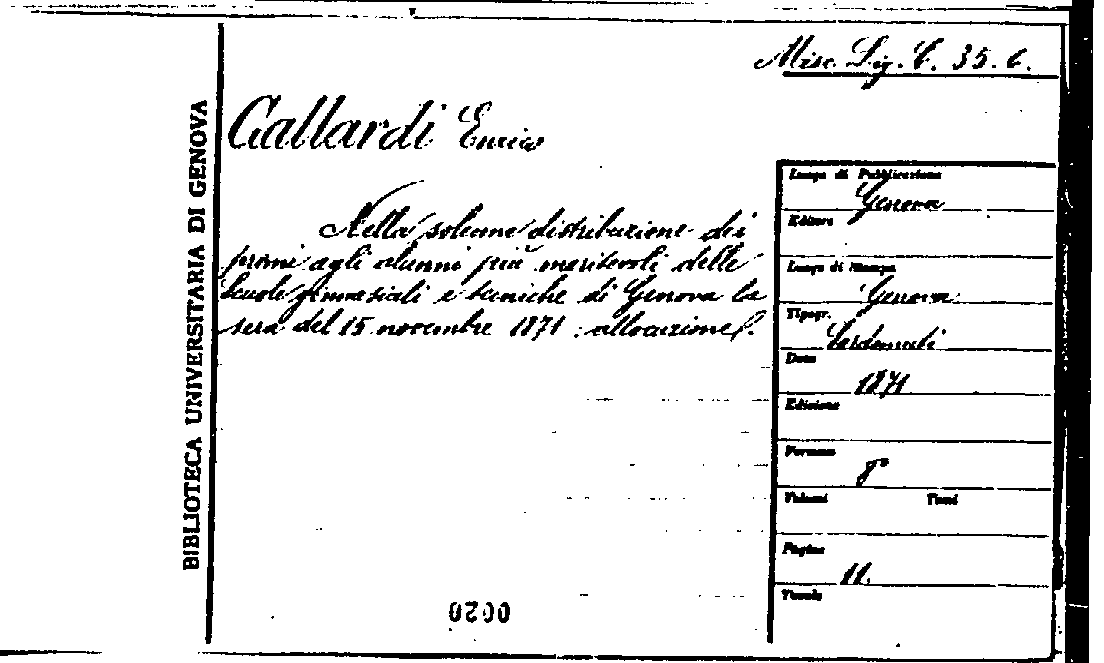 Misc. Lig. C. 35. 6.
BIBLIOTECA UNIVERSITARIA DI GENOVA
Gallardi Enrico
Nella solenne distribuzione dei
premi agli alunni più meritevoli delle
Scuole ginnasiali e tecniche di Genova la
sera del 15 novembre 1871 : allocuzione.
Luogo di Pubblicazione
Genova
Editore
Luogo di Stampa
Genova
Tipogr.
Sordomuti
Data
1871
Edizione
Formato
8°
Volumi Tomi
Pagine
11.
Tavole
0020